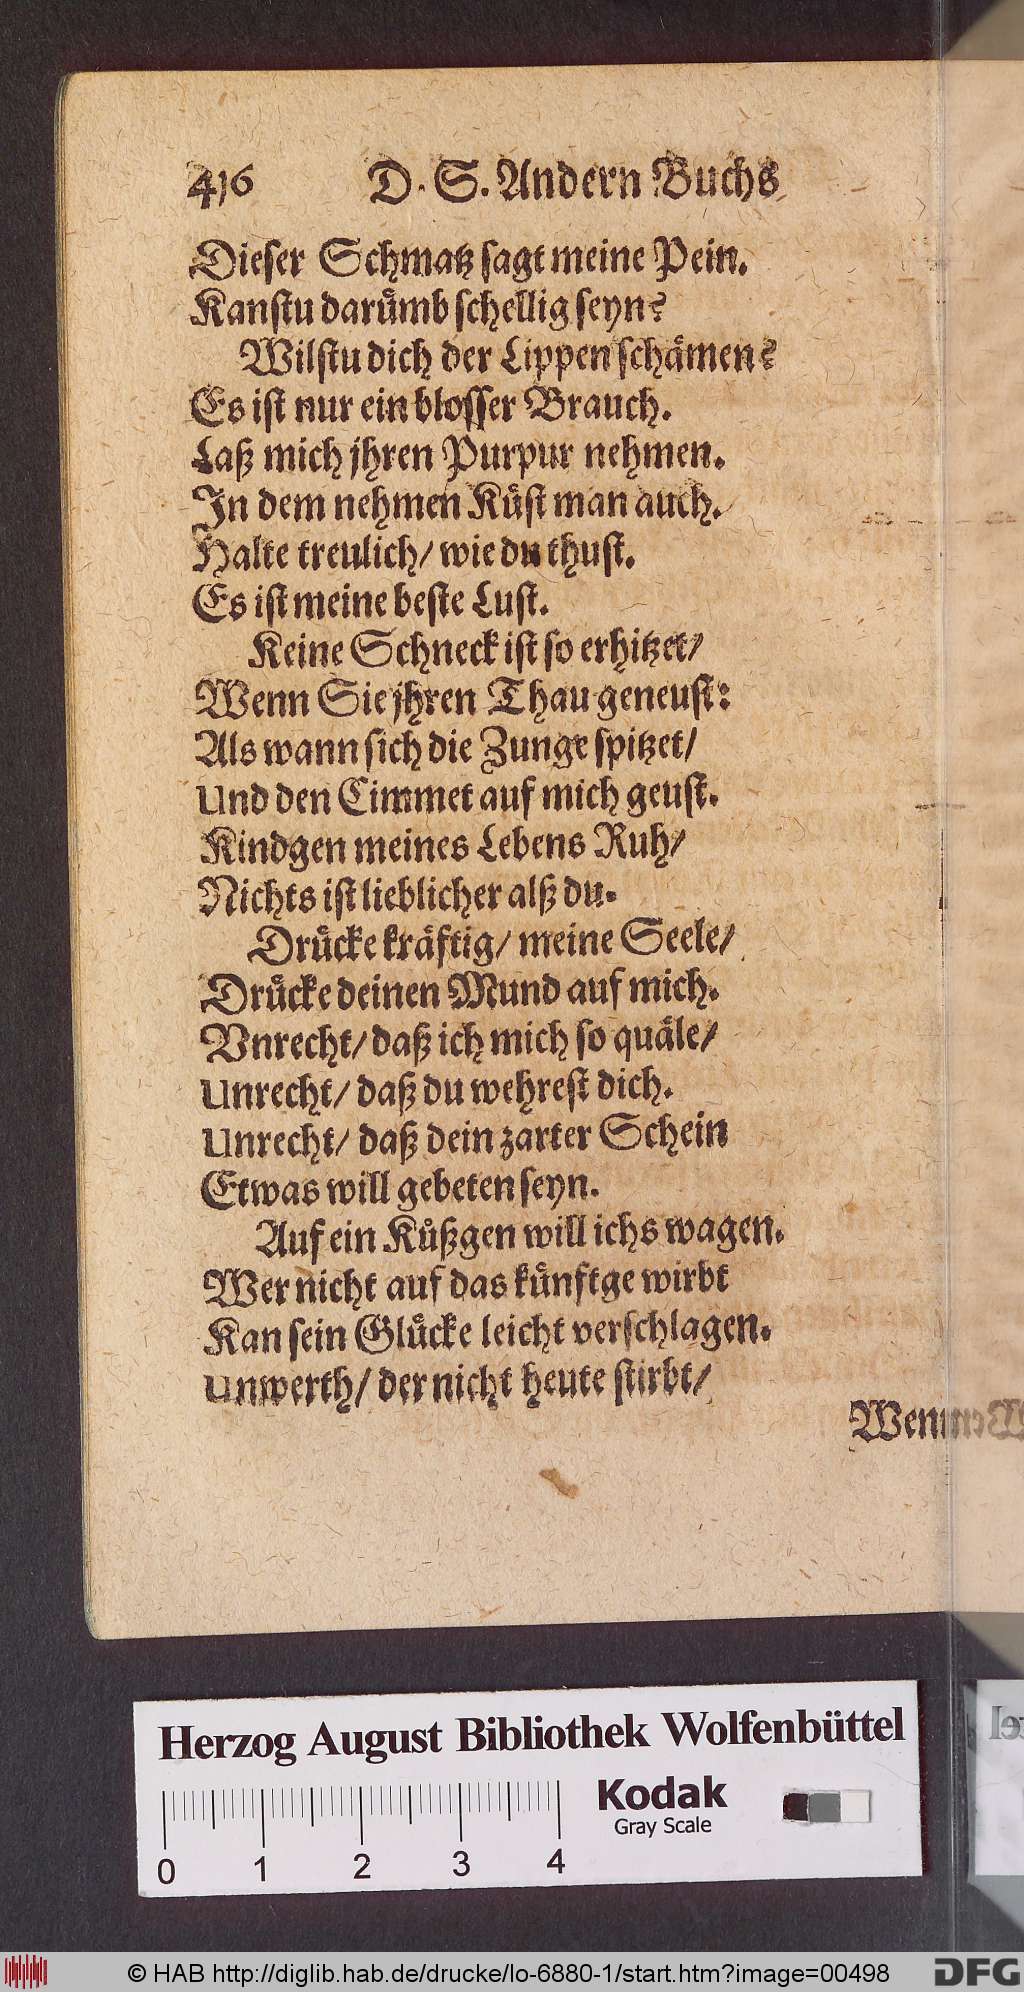 416 D. S. Andern Buchs
Dieser Schmatz sagt meine Pein.
Kanstu darümb schellig seyn?
Wilstu dich der Lippen schämen?
Es ist nur ein blosser Brauch.
Laß mich jhren Purpur nehmen.
In dem nehmen Küst man auch.
Halte treulich/ wie du thust.
Es ist meine beste Lust.
Keine Schneck ist so erhitzet/
Wenn Sie jhren Thau geneust:
Als wann sich die Zunge spitzet/
Und den Cimmet auf mich geust.
Kindgen meines Lebens Ruh/
Nichts ist lieblicher alß du.
Drücke kräftig/ meine Seele/
Drücke deinen Mund auf mich.
Vnrecht/ daß ich mich so quäle/
Unrecht/ daß du wehrest dich.
Unrecht/ daß dein zarter Schein
Etwas will gebeten seyn.
Auf ein Küßgen will ichs wagen.
Wer nicht auf das künftge wirbt
Kan sein Glücke leicht verschlagen.
Unwerth/ der nicht heute stirbt/
Wenn
Herzog August Bibliothek Wolfenbüttel
Kodak
Gray Scale
0 1 2 3 4
© HAB http://diglib.hab.de/drucke/lo-6880-1/start.htm?image=00498
DFG